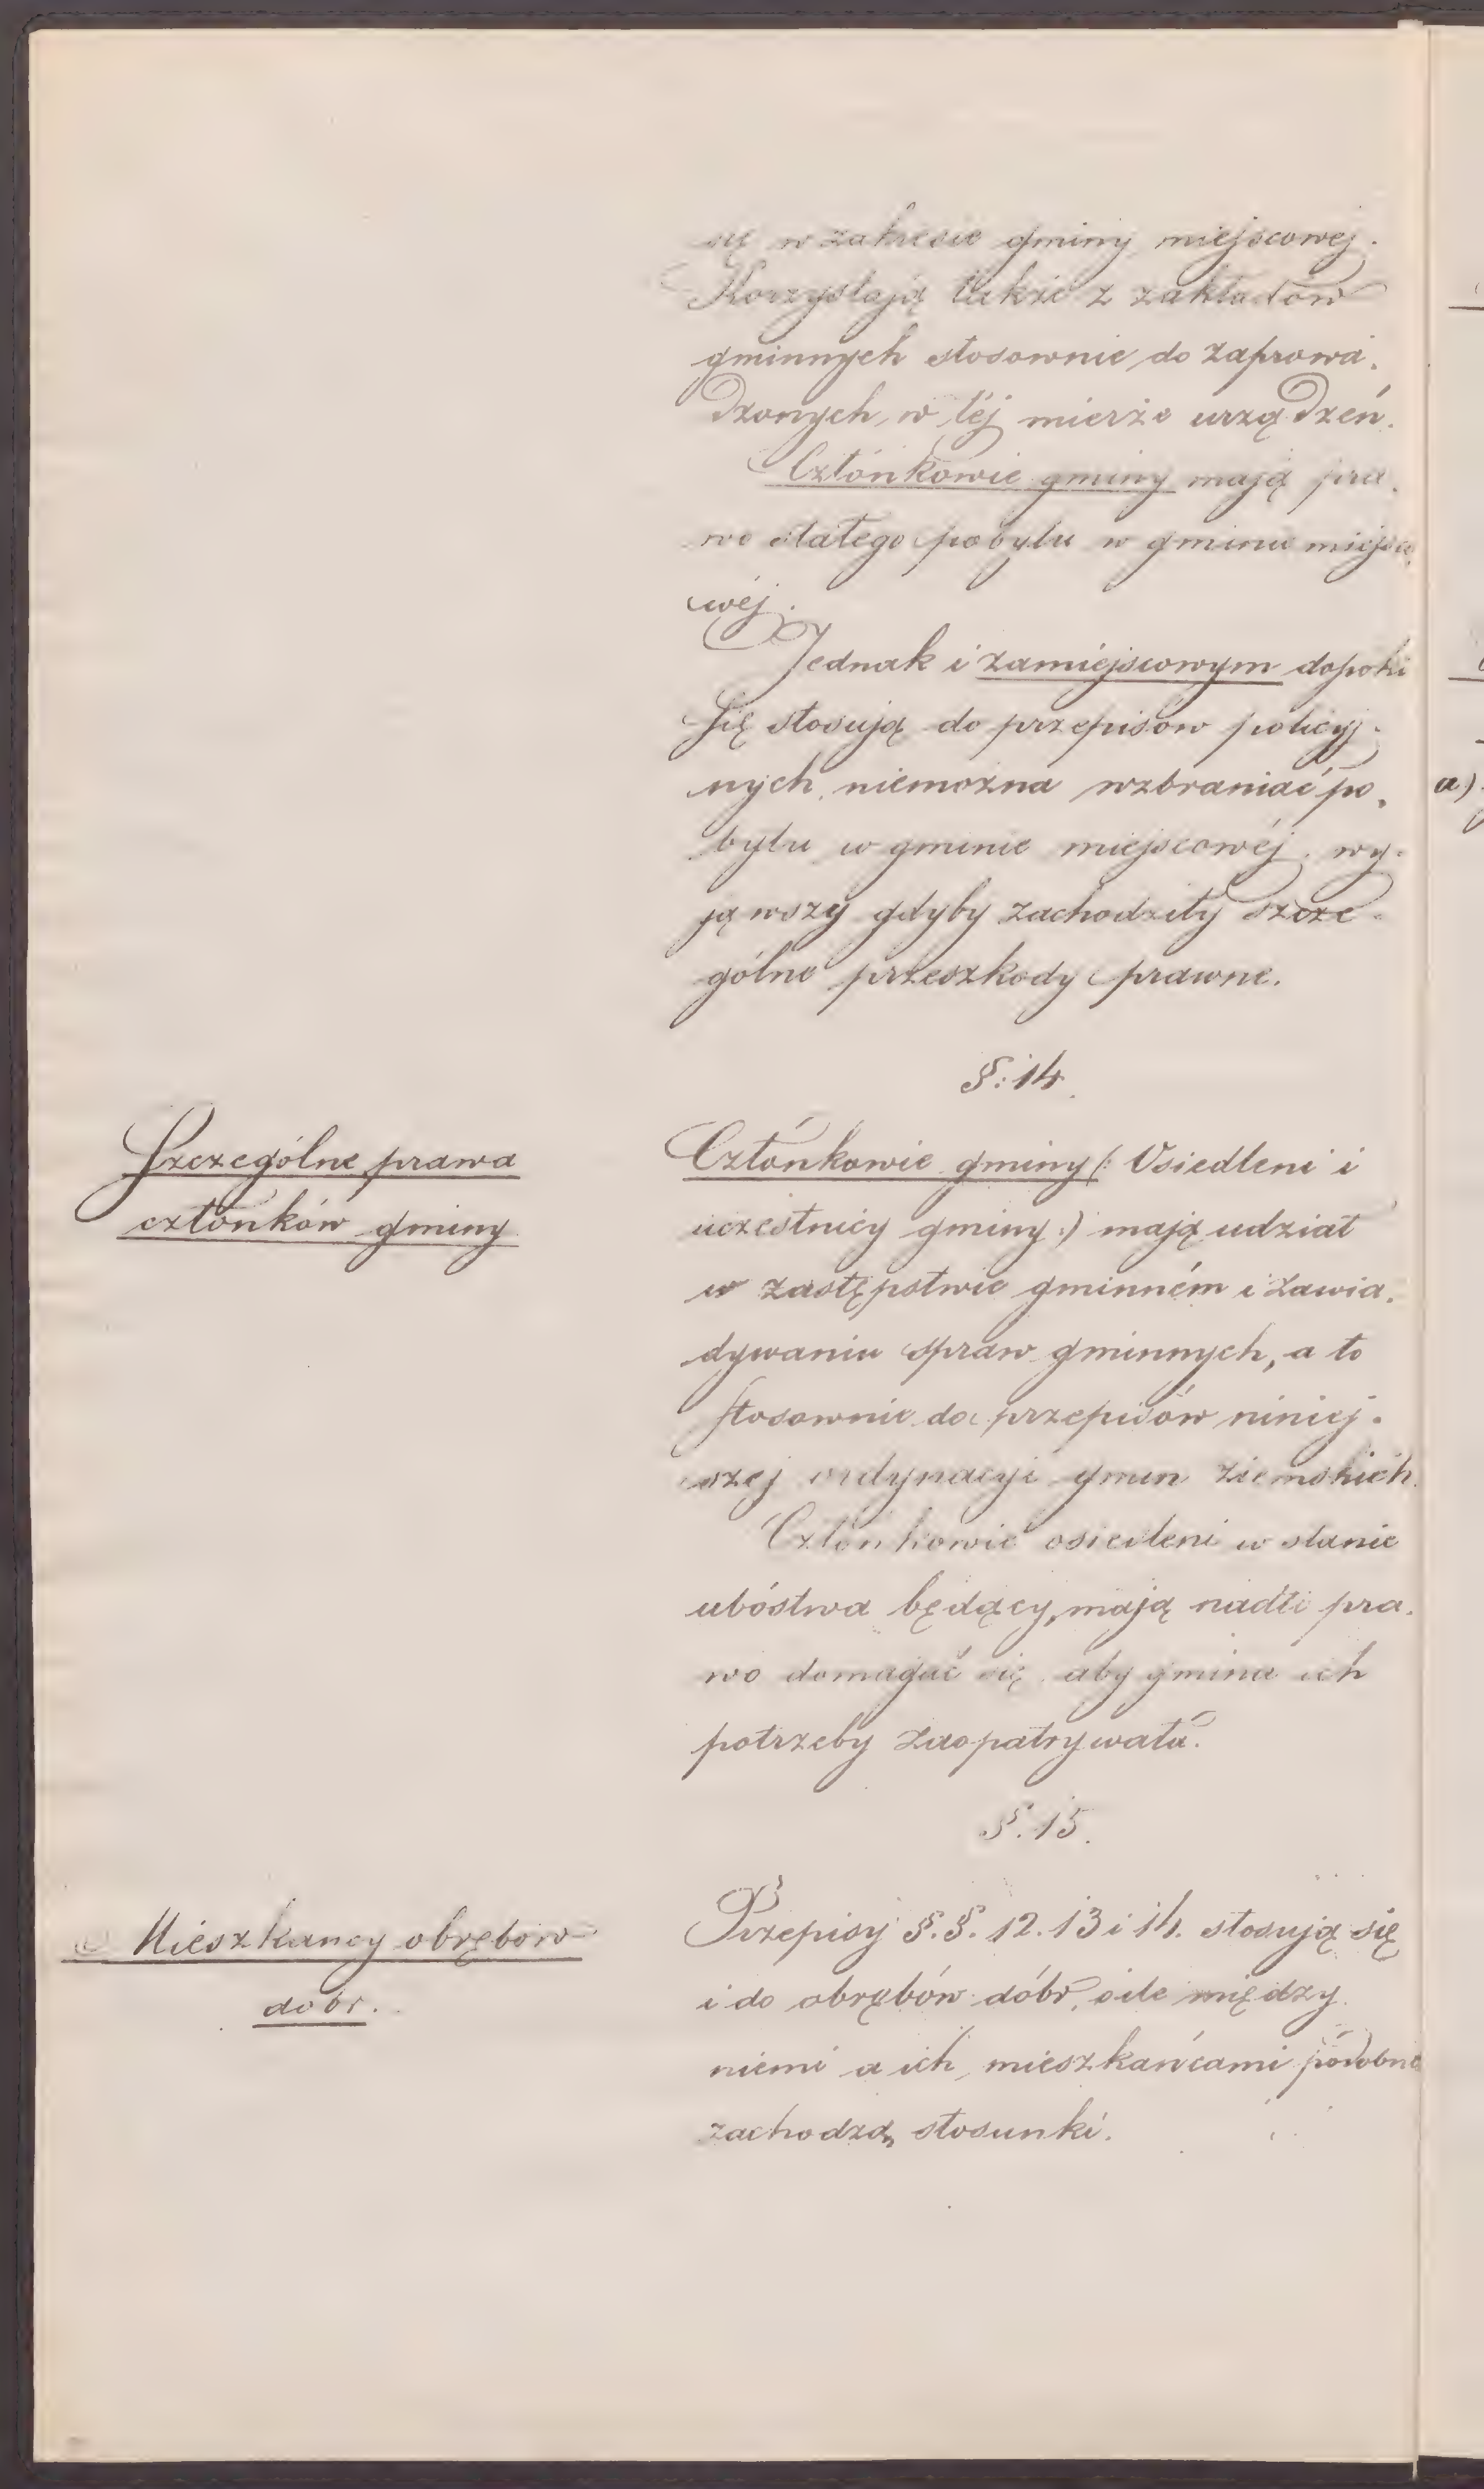 się w zakresie gminy miejscowej.
Korzystają także z zakładów
gminnych stosownie do zaprowa-
dzonych w téj mierze urządzeń.
Członkowie gminy mają pra-
wo stałego pobytu w gminie miejsco-
wéj.
Jednak i zamiejscowym dopoki
się stosują do przepisow policyj-
nych, niemożna wzbraniać po-
bytu w gminie miejscowéj, wy-
jąwszy gdyby zachodziły szcze-
gólne przeszkody prawne.
§: 14.
Szczególne prawa
członków gminy
Członkowie gminy (: Osiedleni i
uczestnicy gminy :) mają udział
w zastępstwie gminném i zawia-
dywaniu spraw gminnych, a to
stosownie do przepisów niniej-
szej ordynacyi gmin ziemskich.
Członkowie osiedleni w stanie
ubóstwa będący, mają nadto pra-
wo domagać się, aby gmina ich
potrzeby zaopatrywała.
§. 15.
Mieszkancy obrębow
dobr.
Przepisy §.§. 12. 13 i 14. stosują się
i do obrębów dóbr, oile między
niemi a ich mieszkańcami podobne
zachodzą stosunki.
a)